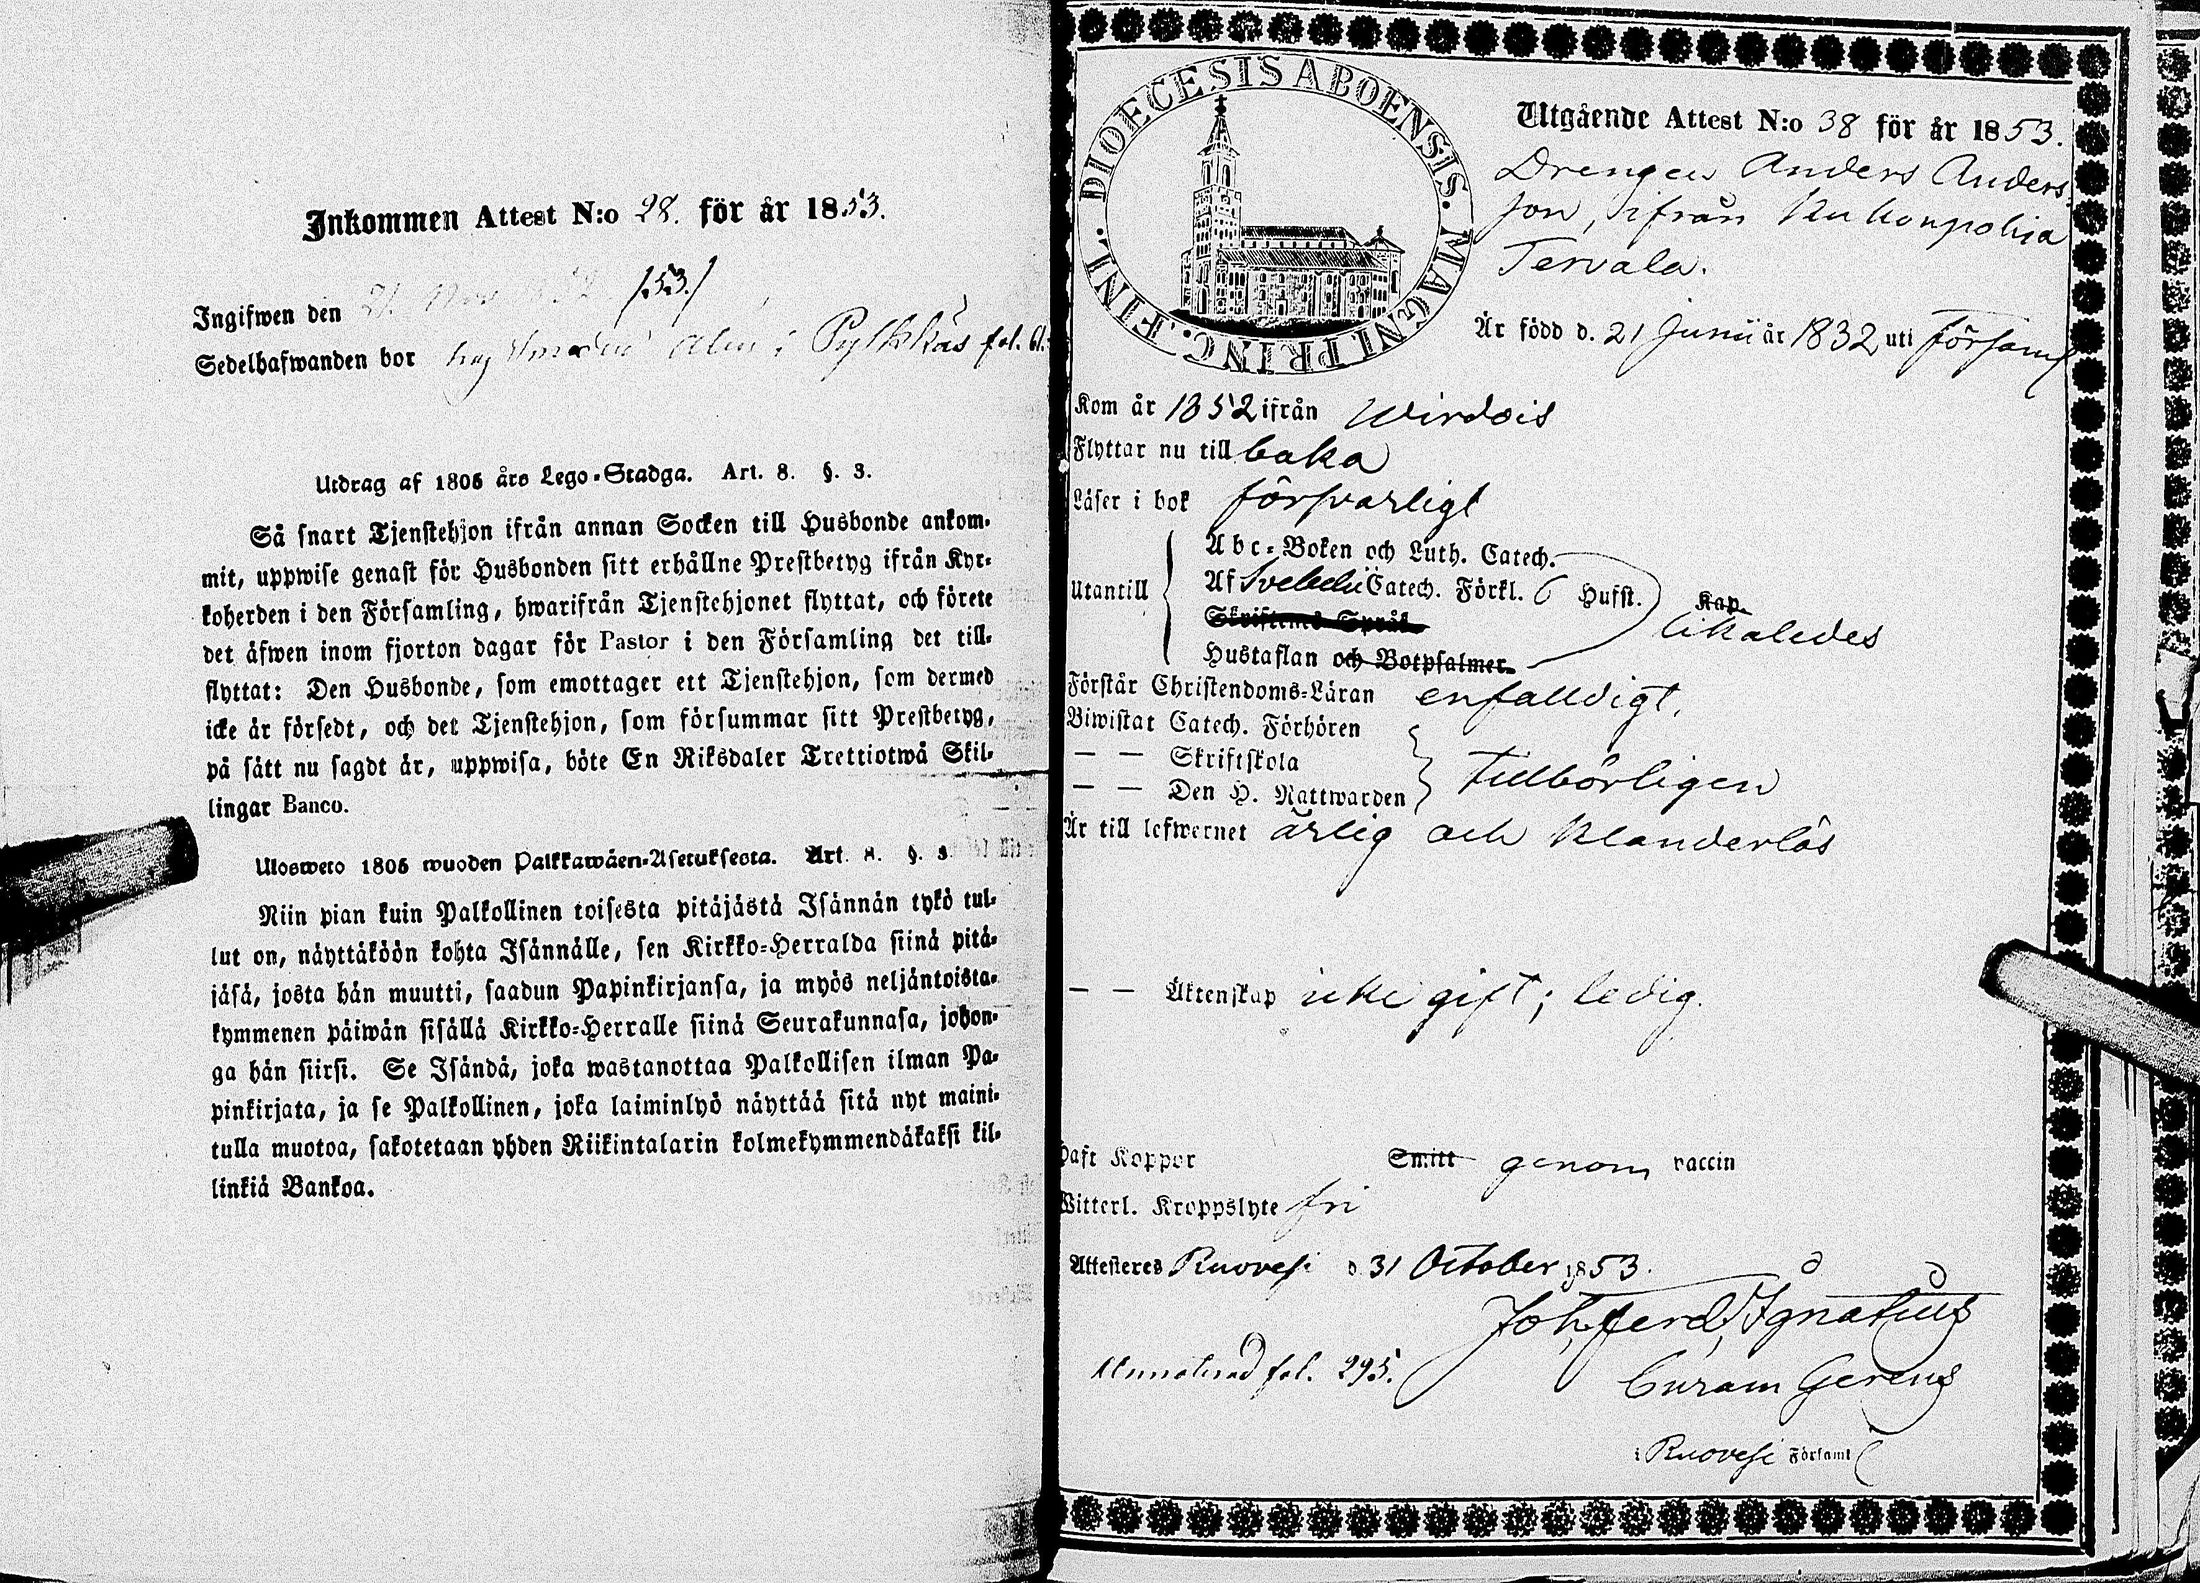 Inkommen Attest N:o 28. för år 1853.
Ingifwen den 21 /53./
Sedelhafwanden bor hos i Pylkkäs fol.
Utdrag af 1805 års Lego-Stadga. Art. 8. §. 3.
Så snart Tjenstehjon ifrån annan Socken till Husbonde ankom-
mit, uppwise genast för Husbonden sitt erhållne Prestbetyg ifrån Kyr-
koherden i den Församling, hwarifrån Tjenstehjonet flyttat, och förete
det äfwen inom fjorton dagar för Pastor i den Församling det till-
flyttat: Den Husbonde, som emottager ett Tjenstehjon, som dermed
icke är försedt, och det Tjenstehjon, som försummar sitt Prestbetyg,
på sätt nu sagdt är, uppwisa, böte En Riksdaler Trettiotwå Skil-
lingar Banco.
Uloswето 1805 wuoden Palkkawäen-Asetuksesta. Art. 8. §. 3
Niin pian kuin Palkollinen toisesta pitäjästä Isännän tykö tul-
lut on, näyttäköön kohta Isännälle, sen Kirkko-Herralda siinä pitä-
jäsä, josta hän muutti, saadun Papinkirjansa, ja myös neljäntoista-
kymmenen päiwän sisällä Kirkko-Herralle siinä Seurakunnasa, johon-
ga hän siirsi. Se Isändä, joka wastanottaa Palkollisen ilman Pa-
pinkirjata, ja se Palkollinen, joka laiminlyö näyttää sitä nyt maini-
tulla muotoa, sakotetaan yhden Riikintalarin kolmekymmendäkaksi kil-
linkiä Bankoa.
DIOECESIS ABOENSIS. MAGNI. PRINC. FINL.
Utgående Attest N:o 38 för år 1853.
Drengen Anders Anders
son, ifrån Kukonpohja
Tervala.
Är född d. 21 Junii år 1832 uti Församl
Kom år 1852 ifrån Wirdois
Flyttar nu till baka
Läser i bok försvarligt
Utantill
Abc-Boken och Luth. Catech.
Af Svebelii Catech. Förkl. 6 Hufst. Kap.
likaledes
Skriftenes Språk
Hustaflan och Botpsalmer.
Förstår Christendoms-Läran enfalldigt.
Biwistat Catech. Förhören
— — Skriftskola
tillbörligen
— — Den H. Nattwarden
Är till lefwernet ärlig och klanderlös
— — Äktenskap icke gift; ledig.
Haft Koppor Smitt genom vaccin
Witterl. Kroppslyte fri
Attesteres Ruovesi d. 31 October 1853.
Joh. Ferd. Ignatius
Annoterad fol. 295.
Curam Gerens
i Ruovesi Församl